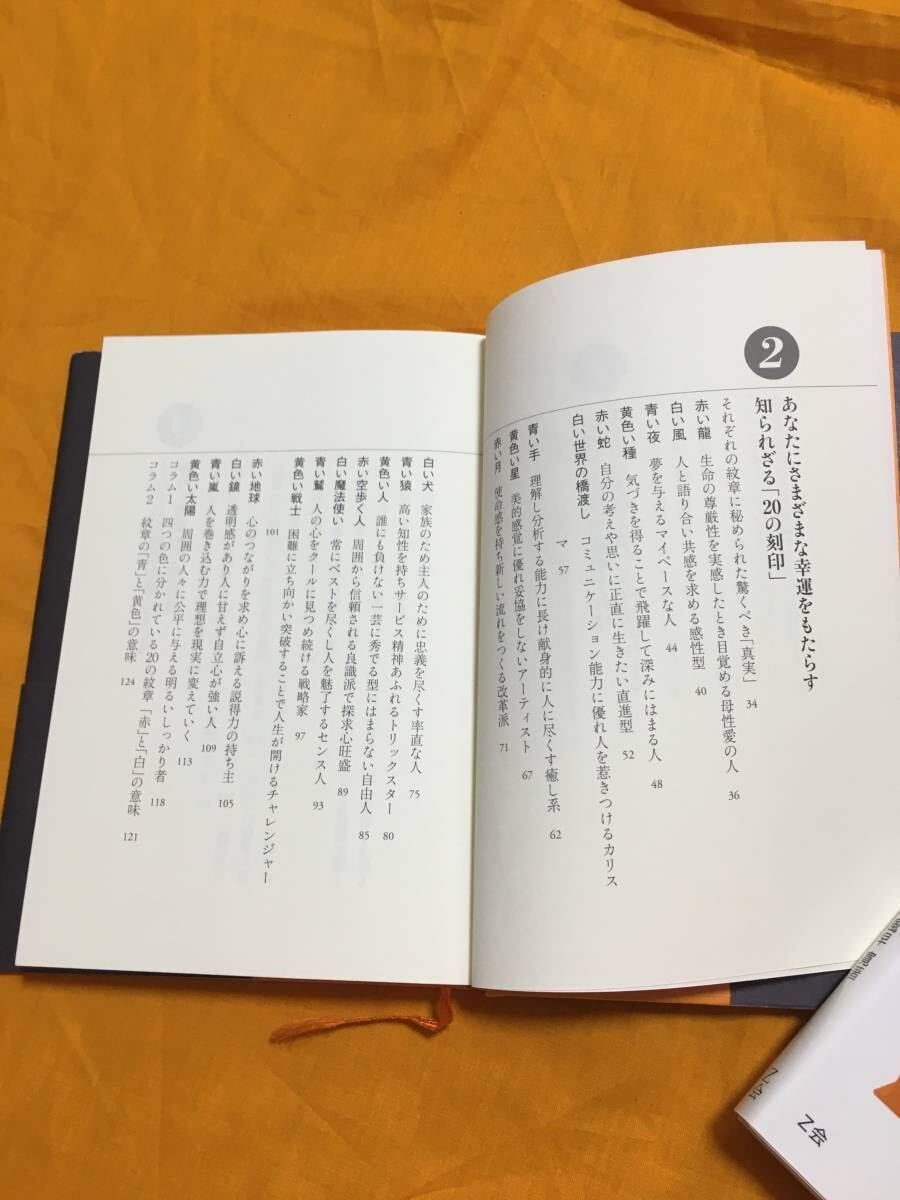 2
あなたにさまざまな幸運をもたらす
知られざる「20の刻印」
それぞれの紋章に秘められた驚くべき「真実」 34
赤い龍 生命の尊厳性を実感したとき目覚める母性愛の人 36
白い風 人と語り合い共感を求める感性型 40
青い夜 夢を与えるマイペースな人 44
黄色い種 気づきを得ることで飛躍して深みにはまる人 48
赤い蛇 自分の考えや思いに正直に生きたい直進型 52
白い世界の橋渡し コミュニケーション能力に優れ人を惹きつけるカリス
マ 57
青い手 理解し分析する能力に長け献身的に人に尽くす癒し系 62
黄色い星 美的感覚に優れ妥協をしないアーティスト 67
赤い月 使命感を持ち新しい流れをつくる改革派 71
白い犬 家族のため主人のために忠義を尽くす率直な人 75
青い猿 高い知性を持ちサービス精神あふれるトリックスター 80
黄色い人 誰にも負けない一芸に秀でる型にはまらない自由人 85
赤い空歩く人 周囲から信頼される良識派で探求心旺盛 89
白い魔法使い 常にベストを尽くし人を魅了するセンス人 93
青い鷲 人の心をクールに見つめ続ける戦略家 97
黄色い戦士 困難に立ち向かい突破することで人生が開けるチャレンジャー
101
赤い地球 心のつながりを求め心に訴える説得力の持ち主 105
白い鏡 透明感があり人に甘えず自立心が強い人 109
青い嵐 人を巻き込む力で理想を現実に変えていく 113
黄色い太陽 周囲の人々に公平に与える明るいしっかり者 118
コラム1 四つの色に分かれている20の紋章「赤」と「白」の意味 121
コラム2 紋章の「青」と「黄色」の意味 124
Z会
Z会